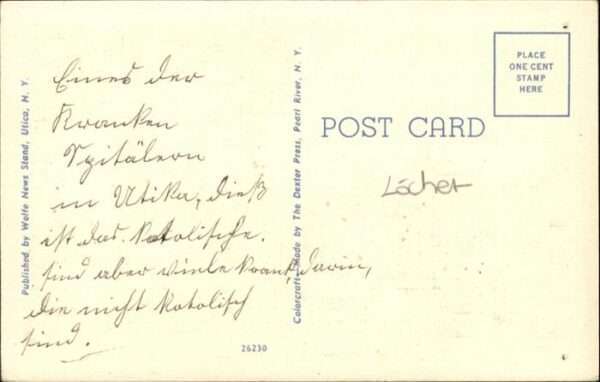 Eines der
Kranken
Spitälern
in Utika, dieß
ist das Katolische.
sind aber viele krank darin,
die nicht Katolisch
sind.
Published by Wolfe News Stand, Utica, N. Y.
26230
Colorcraft—Made by The Dexter Press, Pearl River, N. Y.
POST CARD
PLACE
ONE CENT
STAMP
HERE
Löcher